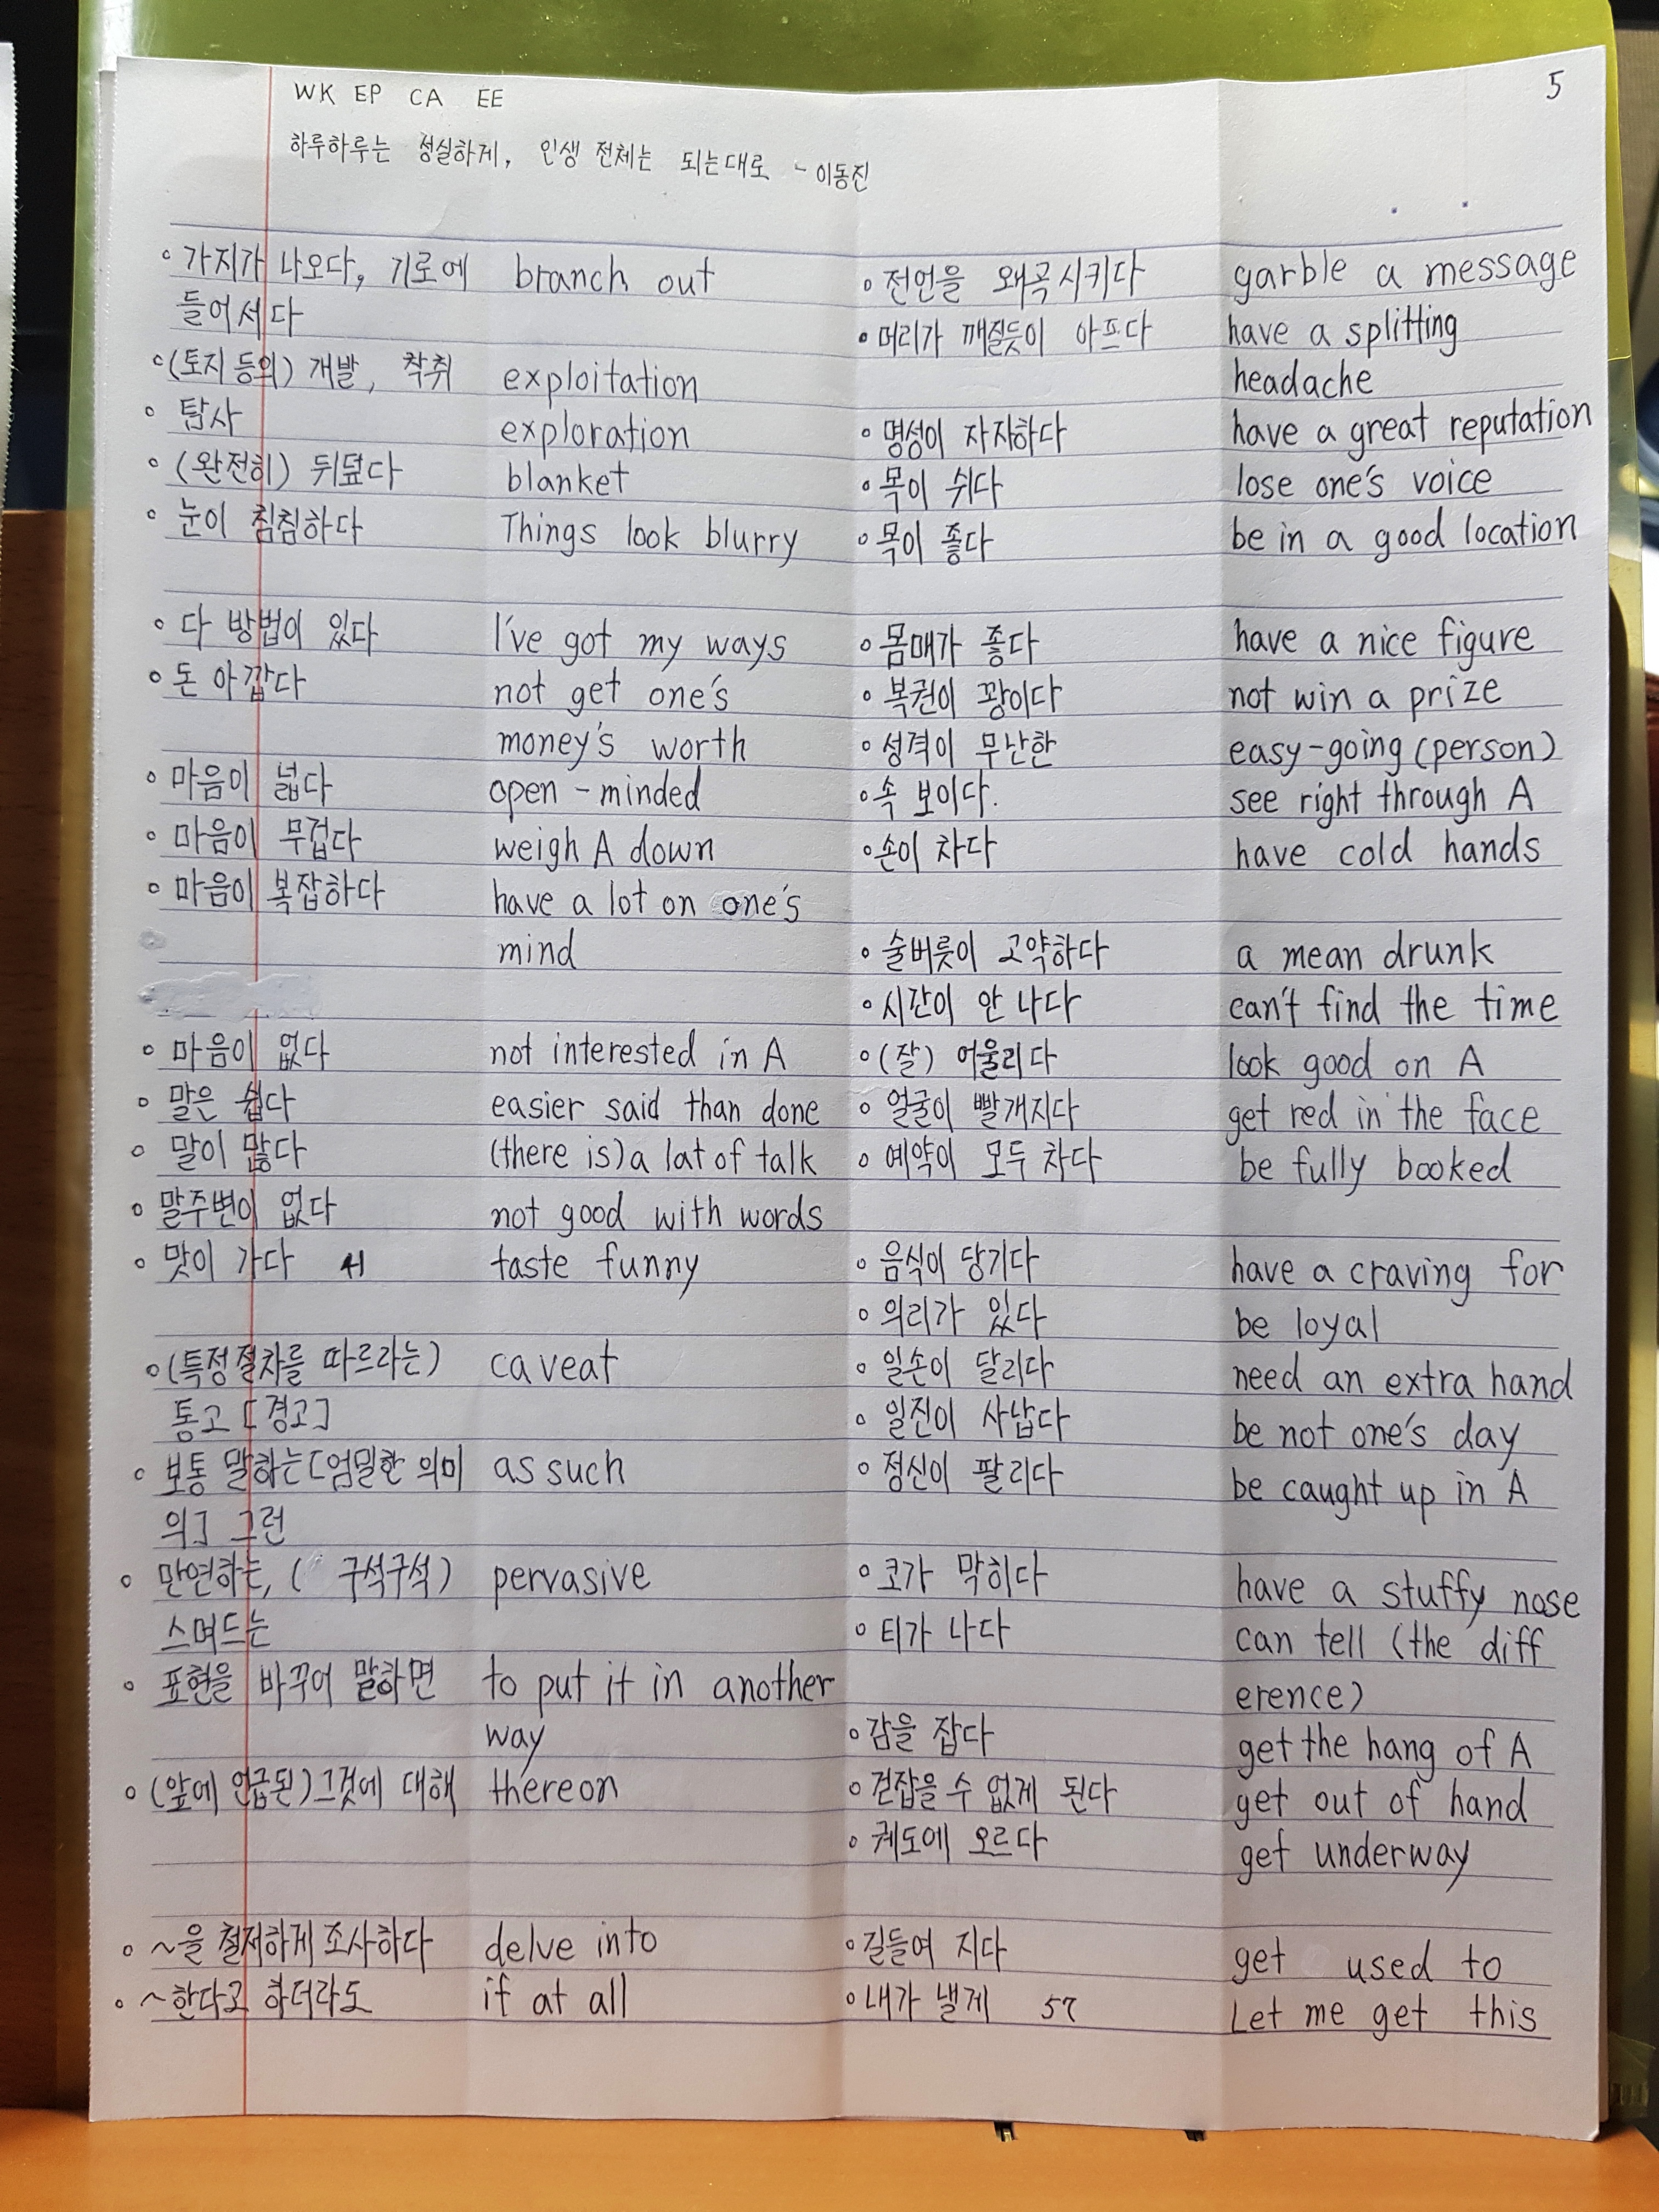 WK EP CA EE
5
하루하루는 성실하게, 인생 전체는 되는대로 - 이동진
◦ 가지가 나오다, 기로에 branch out
들어서다
◦ (토지 등의) 개발, 착취 exploitation
◦ 탐사 exploration
◦ (완전히) 뒤덮다 blanket
◦ 눈이 침침하다 Things look blurry
◦ 다 방법이 있다 I've got my ways
◦ 돈 아깝다 not get one's
money's worth
◦ 마음이 넓다 open-minded
◦ 마음이 무겁다 weigh A down
◦ 마음이 복잡하다 have a lot on one's
mind
◦ 마음이 없다 not interested in A
◦ 말은 쉽다 easier said than done
◦ 말이 많다 (there is) a lat of talk
◦ 말주변이 없다 not good with words
◦ 맛이 가다 taste funny
◦ (특정 절차를 따르라는) caveat
통고 [경고]
◦ 보통 말하는 [엄밀한 의미 as such
의] 그런
◦ 만연하는, ( 구석구석) pervasive
스며드는
◦ 표현을 바꾸어 말하면 to put it in another
way
◦ (앞에 언급된) 그것에 대해 thereon
◦ ~을 철저하게 조사하다 delve into
◦ ~한다고 하더라도 if at all
◦ 전언을 왜곡시키다 garble a message
◦ 머리가 깨질듯이 아프다 have a splitting
headache
◦ 명성이 자자하다 have a great reputation
◦ 목이 쉬다 lose one's voice
◦ 목이 좋다 be in a good location
◦ 몸매가 좋다 have a nice figure
◦ 복권이 꽝이다 not win a prize
◦ 성격이 무난한 easy-going (person)
◦ 속 보이다. see right through A
◦ 손이 차다 have cold hands
◦ 술버릇이 고약하다 a mean drunk
◦ 시간이 안 나다 can't find the time
◦ (잘) 어울리다 look good on A
◦ 얼굴이 빨개지다 get red in the face
◦ 예약이 모두 차다 be fully booked
◦ 음식이 당기다 have a craving for
◦ 의리가 있다 be loyal
◦ 일손이 달리다 need an extra hand
◦ 일진이 사납다 be not one's day
◦ 정신이 팔리다 be caught up in A
◦ 코가 막히다 have a stuffy nose
◦ 티가 나다 can tell (the diff
erence)
◦ 감을 잡다 get the hang of A
◦ 걷잡을 수 없게 된다 get out of hand
◦ 궤도에 오르다 get underway
◦ 길들여 지다 get used to
◦ 내가 낼게 57 Let me get this